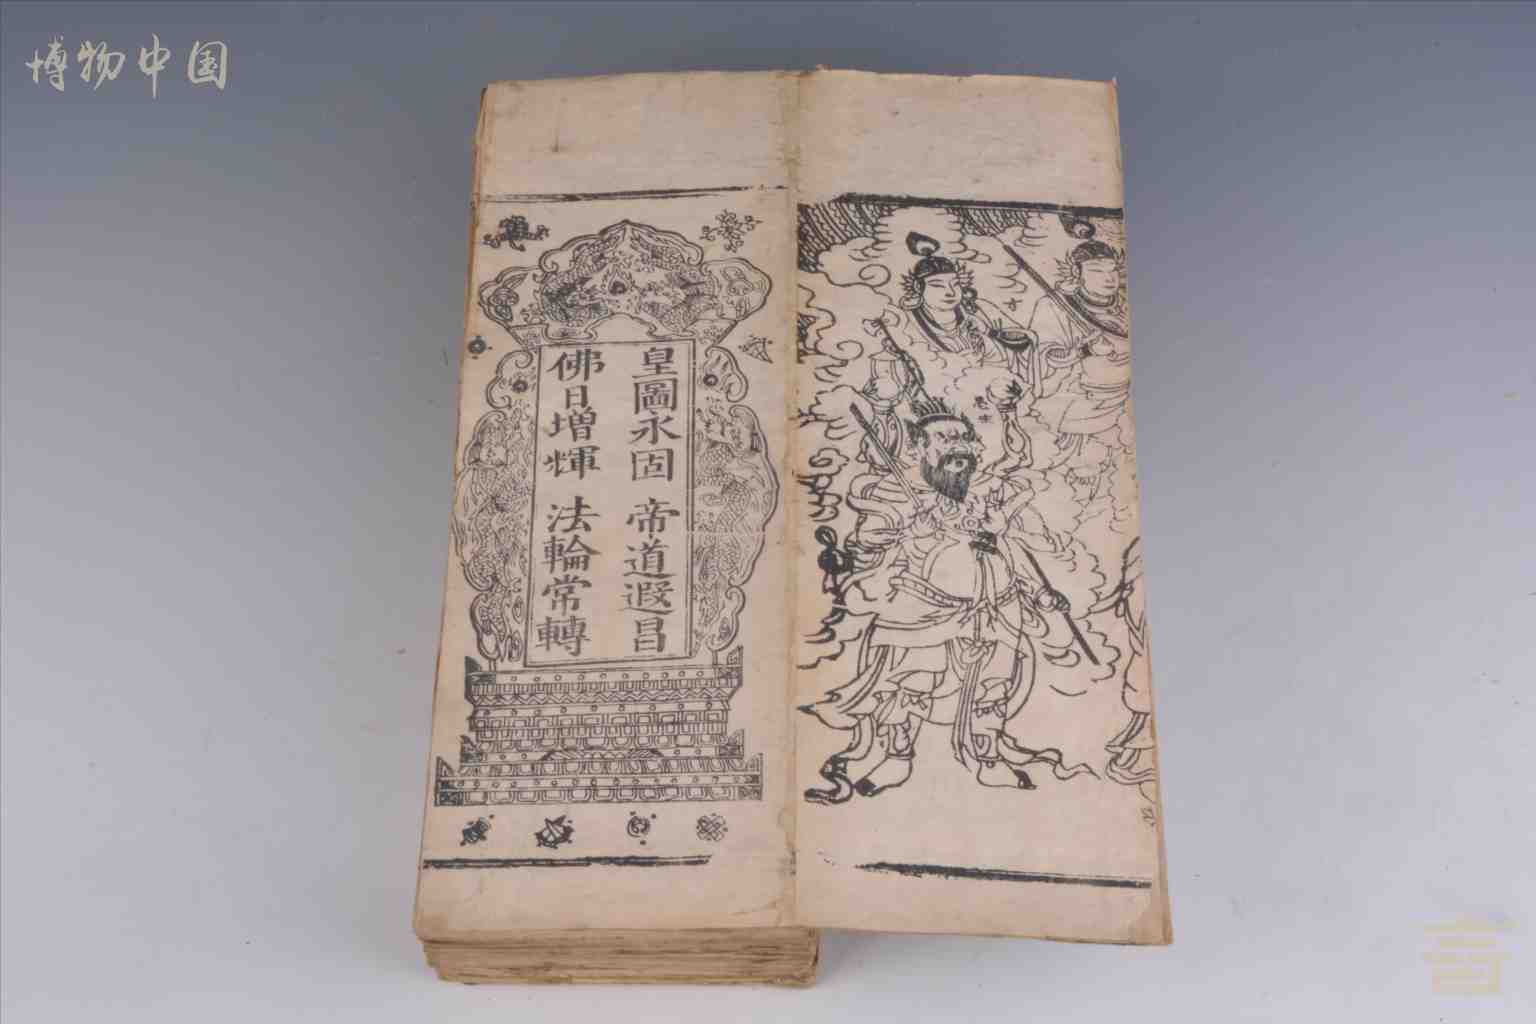 博物中国
皇圖永固 帝道遐昌
佛日增輝 法輪常轉